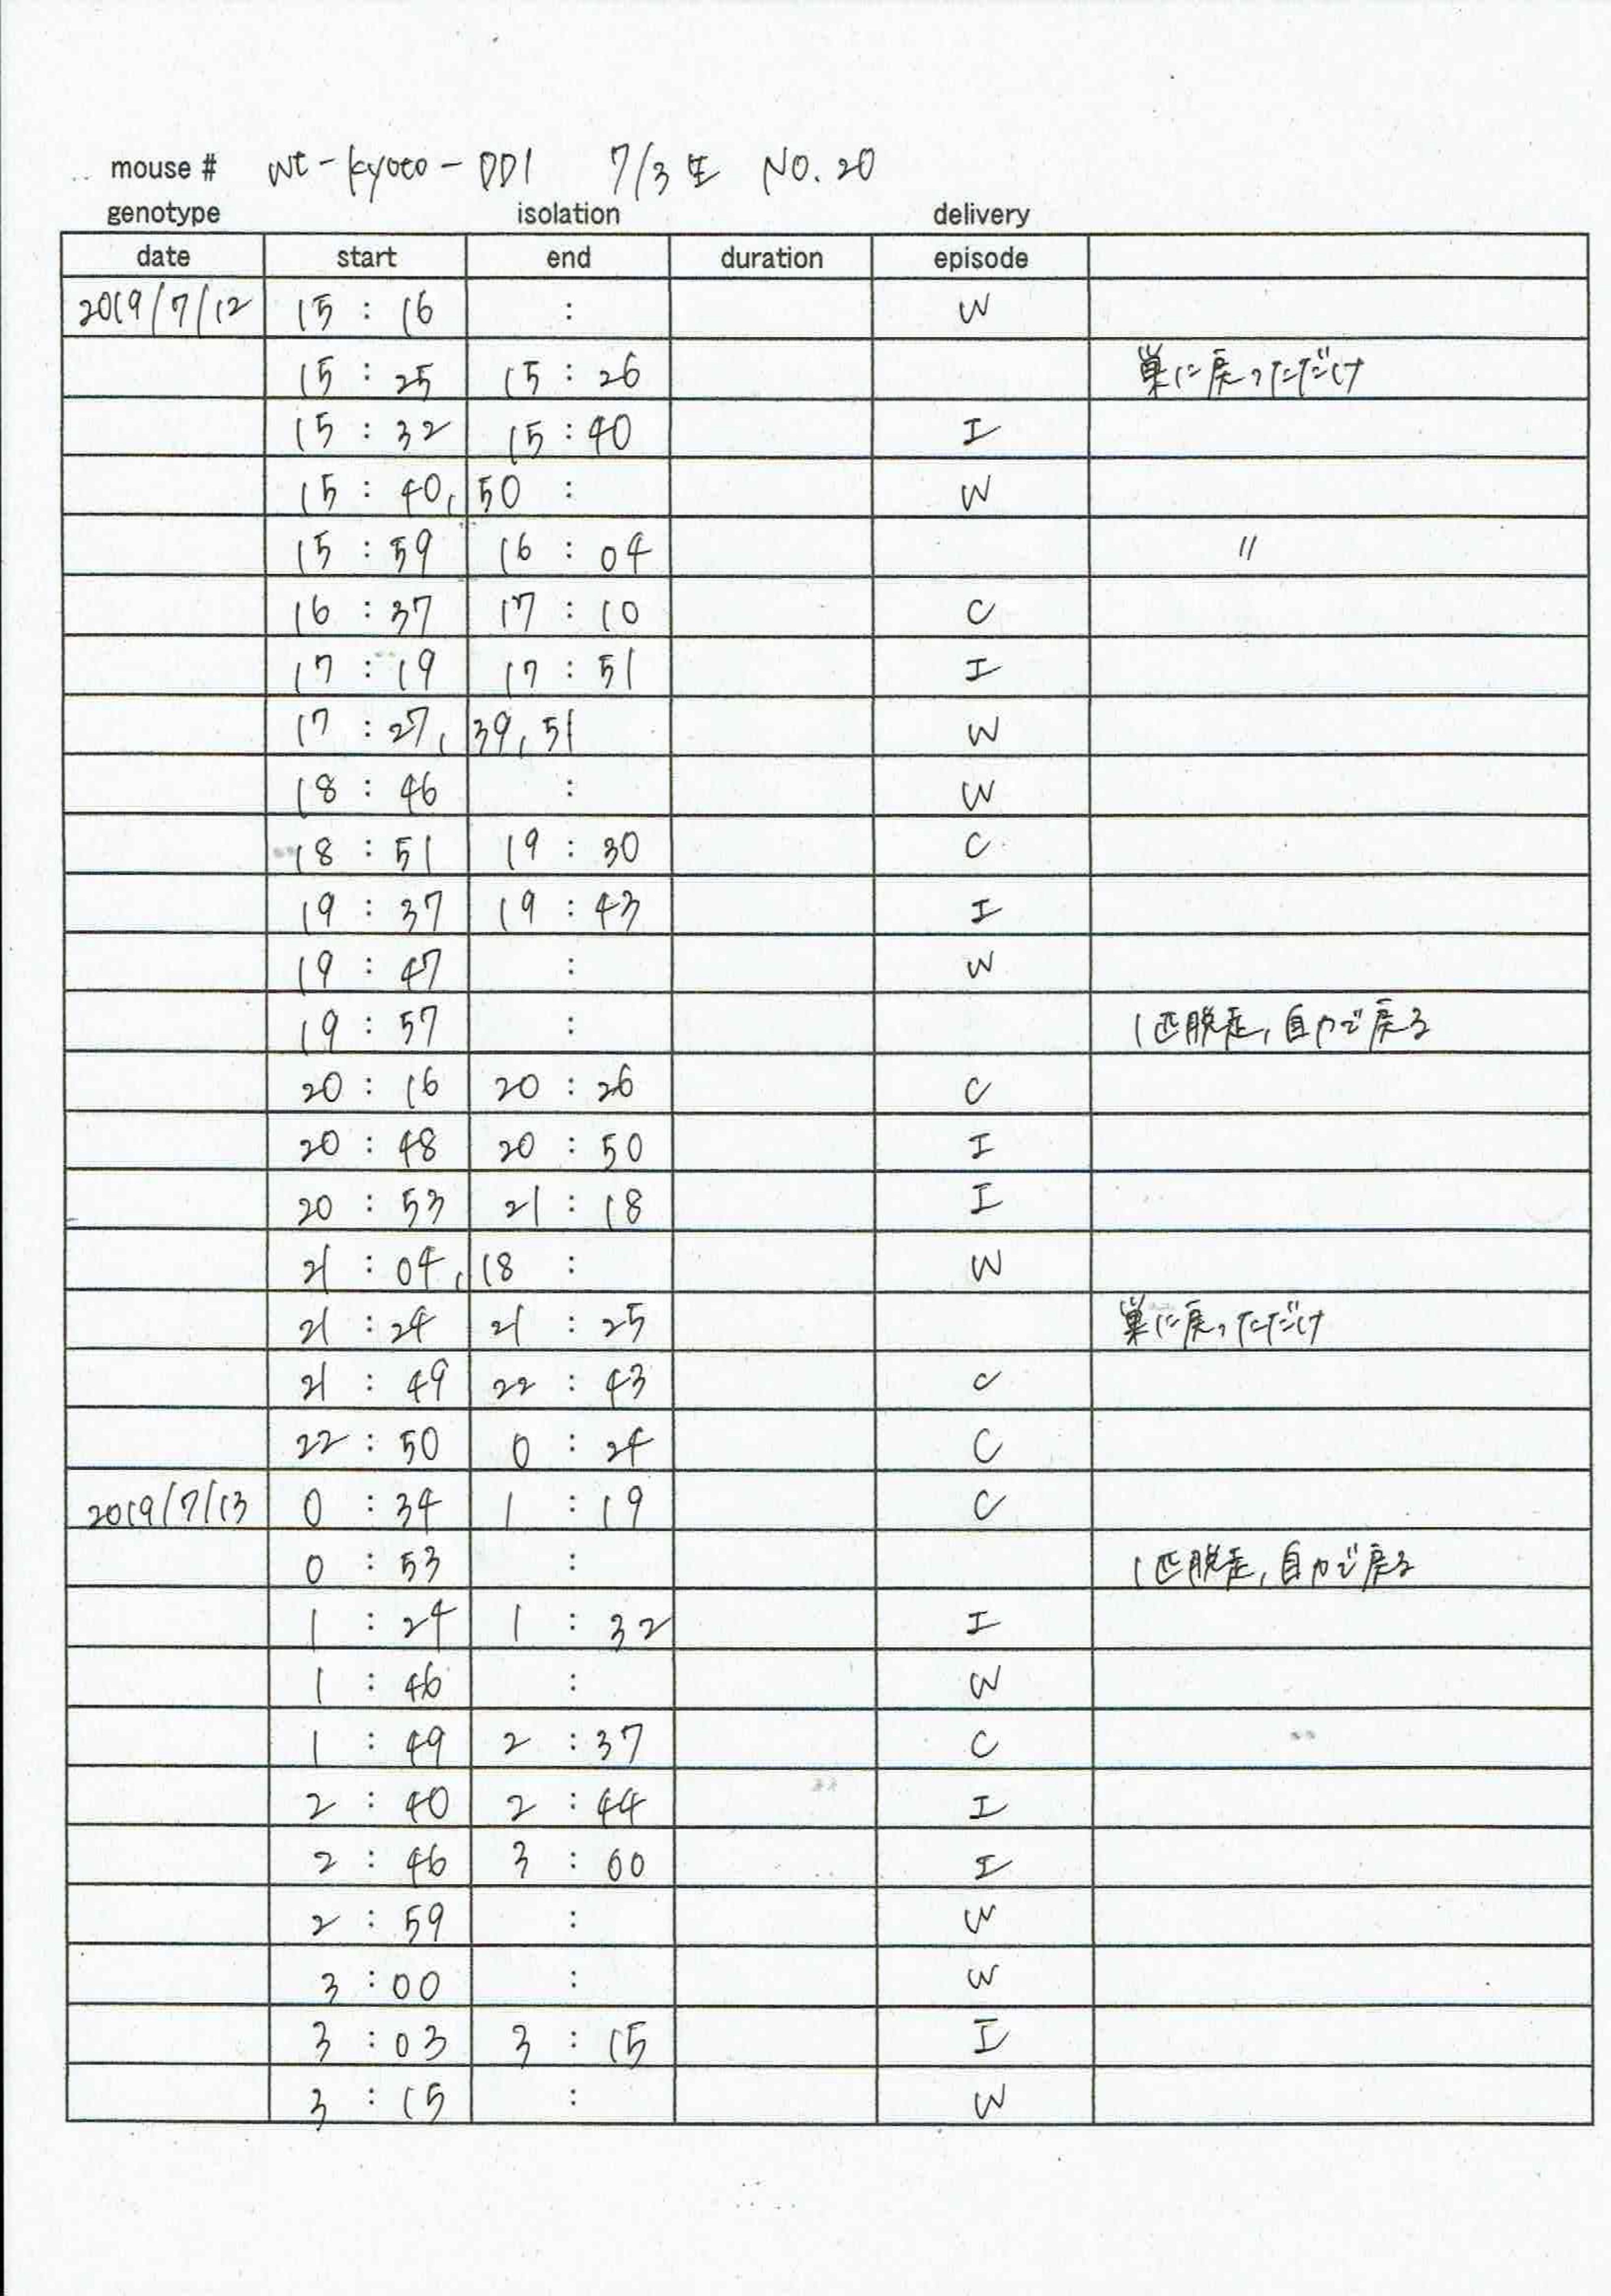 mouse # wt-kyoto-DD1 7/3生 NO.20
genotype isolation delivery
date start end duration episode
2019/7/12 15:16 : W
15:25 15:26 巣に戻っただけ
15:32 15:40 I
15:40,50 : W
15:59 16:04 〃
16:37 17:10 C
17:19 17:51 I
17:27,39,51 W
18:46 : W
18:51 19:30 C
19:37 19:43 I
19:47 : W
19:57 : 1匹脱走,自力で戻る
20:16 20:26 C
20:48 20:50 I
20:53 21:18 I
21:04,18 : W
21:24 21:25 巣に戻っただけ
21:49 22:43 C
22:50 0:24 C
2019/7/13 0:34 1:19 C
0:53 : 1匹脱走,自力で戻る
1:24 1:32 I
1:46 : W
1:49 2:37 C
2:40 2:44 I
2:46 3:00 I
2:59 : W
3:00 : W
3:03 3:15 I
3:15 : W